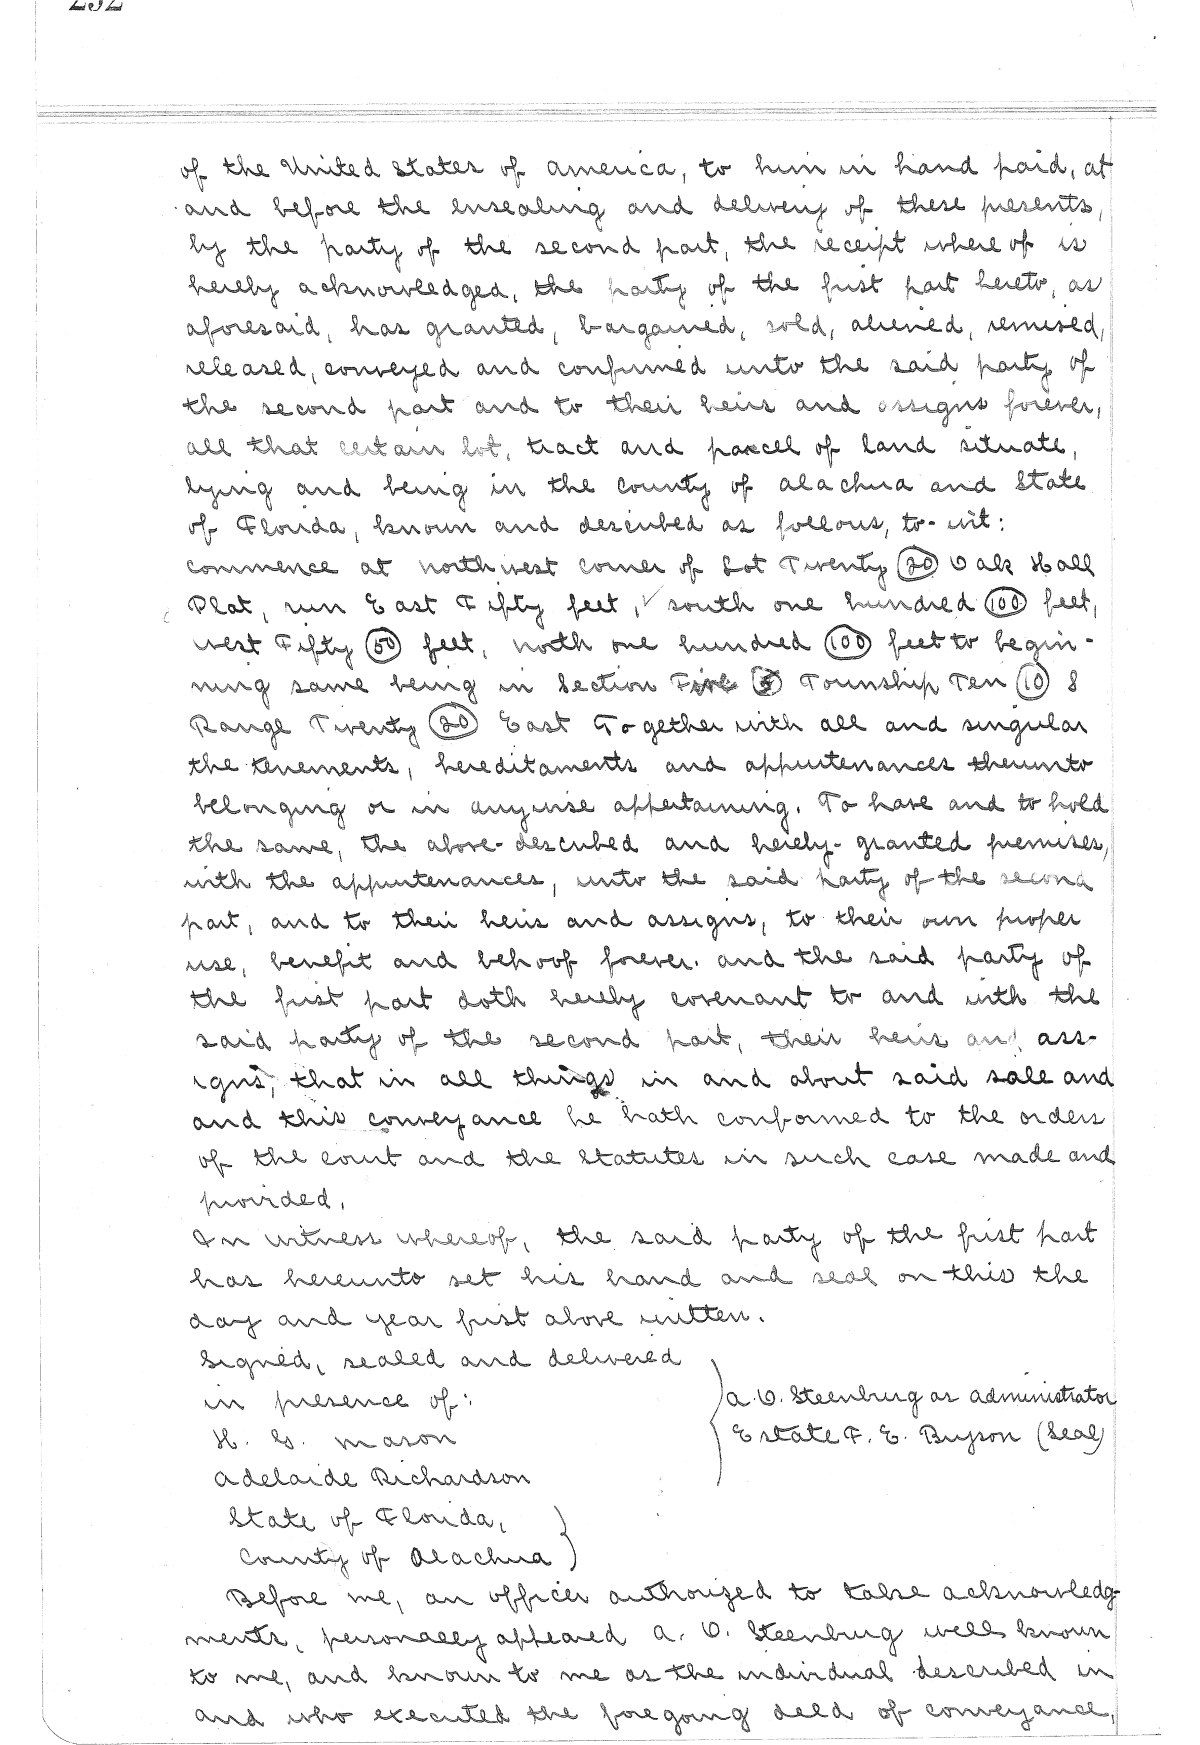 of the United States of America, to him in hand paid, at
and before the ensealing and delivery of these presents,
by the party of the second part, the receipt where of is
hereby acknowledged, the party of the first part hereto, as
aforesaid, has granted, bargained, sold, aliened, remised,
released, conveyed and confirmed unto the said party of
the second part and to their heirs and assigns forever,
all that certain lot, tract and parcel of land situate,
lying and being in the county of Alachua and State
of Florida, known and described as follows, to-wit:
commence at northwest corner of Lot Twenty (20) Oak Hall
Plat, run East Fifty feet, south one hundred (100) feet,
west Fifty (50) feet, north one hundred (100) feet to begin-
ning same being in Section Five (5) Township Ten (10) S
Range Twenty (20) East Together with all and singular
the tenements, hereditaments and appurtenances thereunto
belonging or in anywise appertaining. To have and to hold
the same, the above-described and hereby-granted premises,
with the appurtenances, unto the said party of the second
part, and to their heirs and assigns, to their own proper
use, benefit and behoof forever. and the said party of
the first part doth hereby covenant to and with the
said party of the second part, their heirs and ass-
igns, that in all things in and about said sale and
and this conveyance he hath conformed to the orders
of the court and the statutes in such case made and
provided.
In witness whereof, the said party of the first part
has hereunto set his hand and seal on this the
day and year first above written.
Signed, sealed and delivered
in presence of:
H. G. Mason
Adelaide Richardson
A. V. Steenburg as administrator
Estate F. E. Bryson (Seal)
State of Florida,
County of Alachua
Before me, an officer authorized to take acknowledg-
ments, personally appeared A. V. Steenburg well known
to me, and known to me as the individual described in
and who executed the foregoing deed of conveyance,